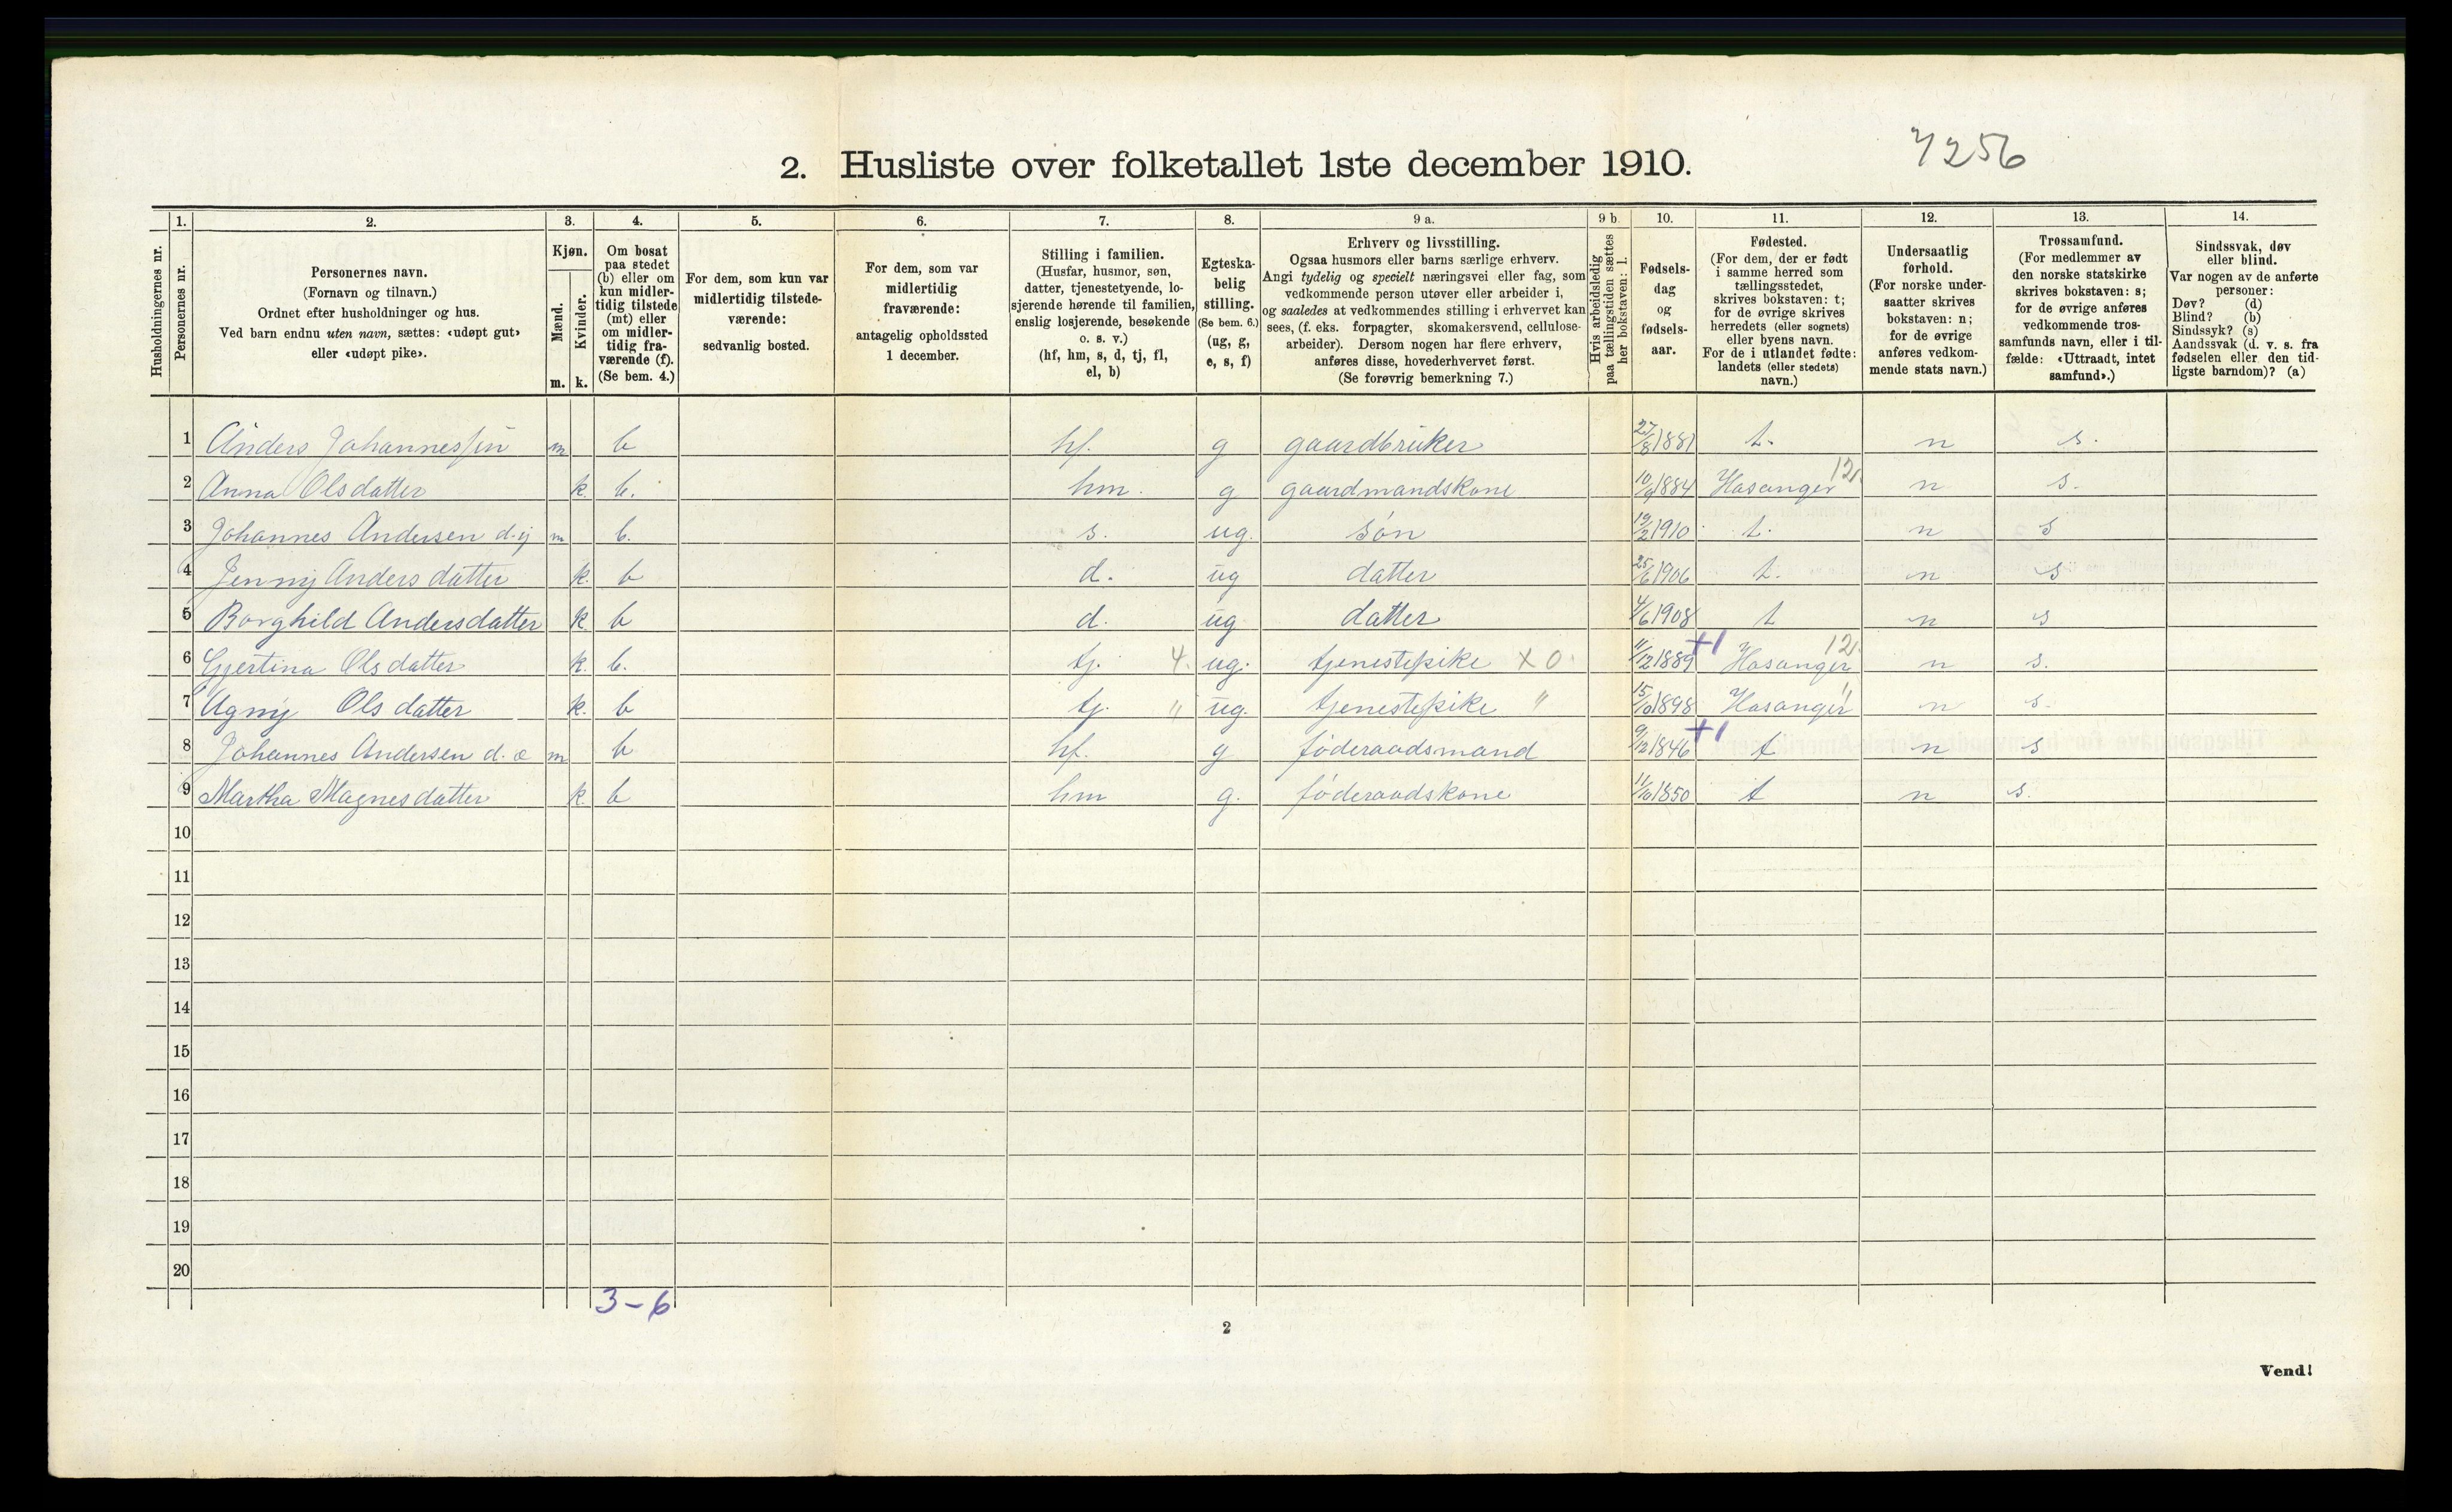 7256
2. Husliste over folketallet 1ste december 1910.
Husholdningernes nr.
1. Personernes nr.
2. Personernes navn.
(Fornavn og tilnavn.)
Ordnet efter husholdninger og hus.
Ved barn endnu uten navn, sættes: «udøpt gut»
eller «udøpt pike».
3. Kjøn.
Mænd. m.
Kvinder. k.
4. Om bosat
paa stedet
(b) eller om
kun midler-
tidig tilstede
(mt) eller
om midler-
tidig fra-
værende (f).
(Se bem. 4.)
5. For dem, som kun var
midlertidig tilstede-
værende:
sedvanlig bosted.
6. For dem, som var
midlertidig
fraværende:
antagelig opholdssted
1 december.
7. Stilling i familien.
(Husfar, husmor, søn,
datter, tjenestetyende, lo-
sjerende hørende til familien,
enslig losjerende, besøkende
o. s. v.)
(hf, hm, s, d, tj, fl,
el, b)
8. Egteska-
belig
stilling.
(Se bem. 6.)
(ug, g,
e, s, f)
9 a. Erhverv og livsstilling.
Ogsaa husmors eller barns særlige erhverv.
Angi tydelig og specielt næringsvei eller fag, som
vedkommende person utøver eller arbeider i,
og saaledes at vedkommendes stilling i erhvervet kan
sees, (f. eks. forpagter, skomakersvend, cellulose-
arbeider). Dersom nogen har flere erhverv,
anføres disse, hovederhvervet først.
(Se forøvrig bemerkning 7.)
9 b. Hvis arbeidsledig
paa tællingstiden sættes
her bokstaven: l.
10. Fødsels-
dag
og
fødsels-
aar.
11. Fødested.
(For dem, der er født
i samme herred som
tællingsstedet,
skrives bokstaven: t;
for de øvrige skrives
herredets (eller sognets)
eller byens navn.
For de i utlandet fødte:
landets (eller stedets)
navn.)
12. Undersaatlig
forhold.
(For norske under-
saatter skrives
bokstaven: n;
for de øvrige
anføres vedkom-
mende stats navn.)
13. Trossamfund.
(For medlemmer av
den norske statskirke
skrives bokstaven: s;
for de øvrige anføres
vedkommende tros-
samfunds navn, eller i til-
fælde: «Uttraadt, intet
samfund».)
14. Sindssvak, døv
eller blind.
Var nogen av de anførte
personer:
Døv? (d)
Blind? (b)
Sindssyk? (s)
Aandssvak (d. v. s. fra
fødselen eller den tid-
ligste barndom)? (a)
1 Anders Johannessen m b hf. g gaardbruker 27/8 1881 t. n s.
2 Anna Olsdatter k. b. hm. g gaardmandskone 10/9 1884 Hosanger 12. n s.
3 Johannes Andersen d.y m b. s. ug. søn 19/2 1910 t. n s
4 Jenny Andersdatter k. b d. ug datter 25/6 1906 t. n s.
5 Borghild Andersdatter k. b d. ug. datter 4/6 1908 t n s
6 Gjertina Olsdatter k. b. tj. 4. ug. tjenestepike x 0. 11/12 1889 +1 Hosanger 12. n s.
7 Agny Olsdatter k. b tj. " ug. tjenestepike " 15/10 1898 Hosanger " n s.
8 Johannes Andersen d. æ m b hf. g føderaadsmand 9/12 1846 +1 t n s
9 Martha Magnesdatter k. b hm g. føderaadskone 11/10 1850 t n s.
10
11
12
13
14
15
16
17
18
19
20
3-6
2
Vend!